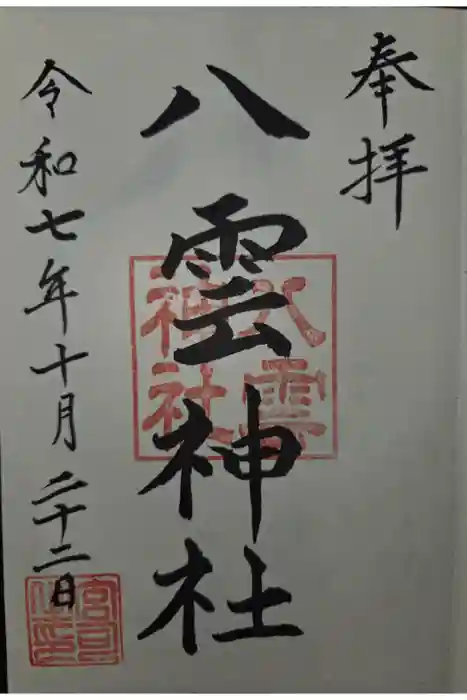 奉拝
八雲神社
八雲神社
令和七年十月二十二日